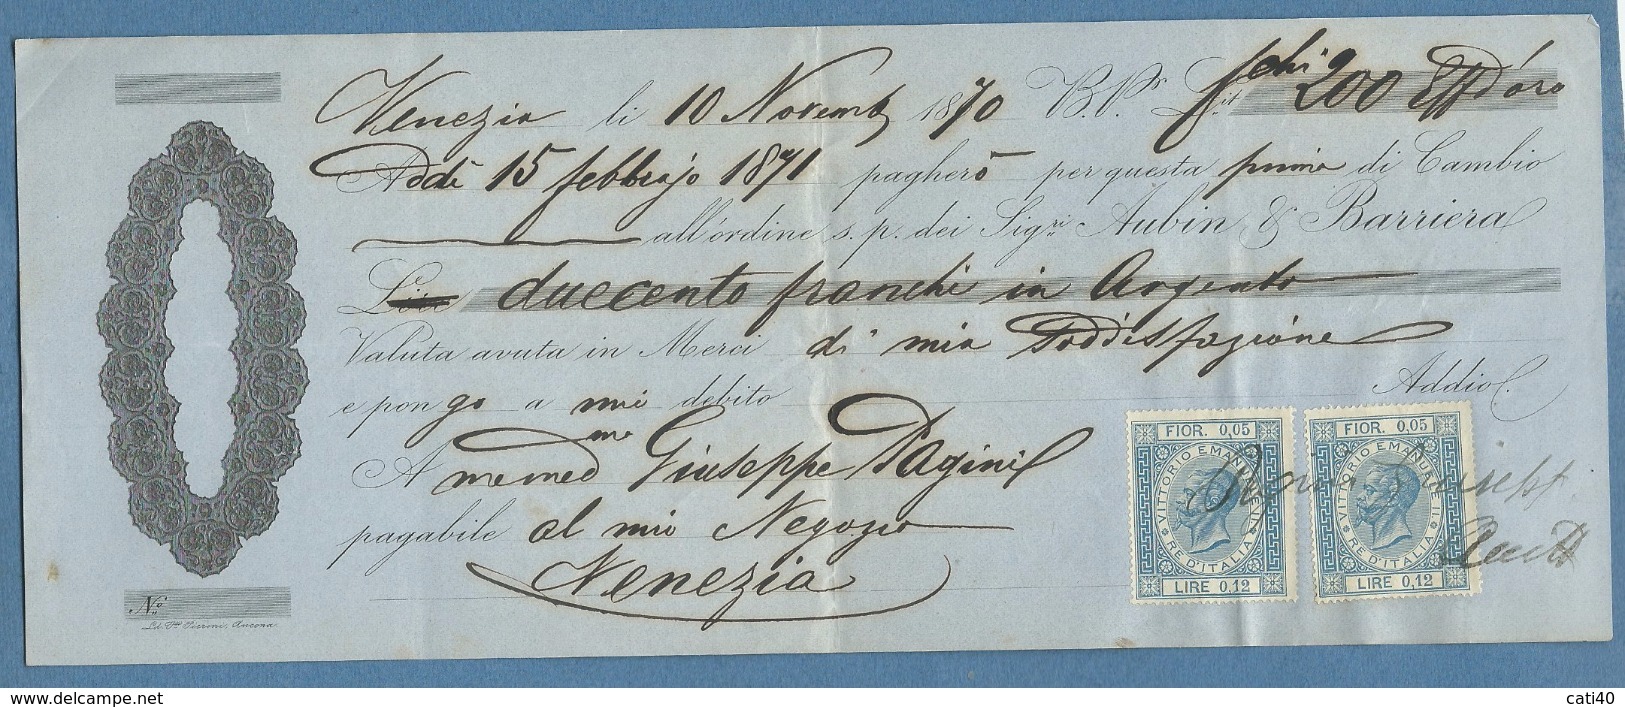 Venezia li 10 Novemb 1870 B. P. Lit. fchi 200 Eff d'oro
Addì 15 febbrajo 1871 pagherò per questa prima di Cambio
all'ordine s. p. dei Sigri Aubin & Barriera
Lire duecento franchi in Argento
Valuta avuta in Merci di mia Soddisfazione
e pongo a mio debito Addio
A me medmo Giuseppe Pagini
pagabile al mio Negozio
Venezia
FIOR. 0,05
VITTORIO EMANUELE II
RE D'ITALIA
LIRE 0,12
FIOR. 0,05
VITTORIO EMANUELE II
RE D'ITALIA
LIRE 0,12
No.
Lit. Pieroni, Ancona
cati40